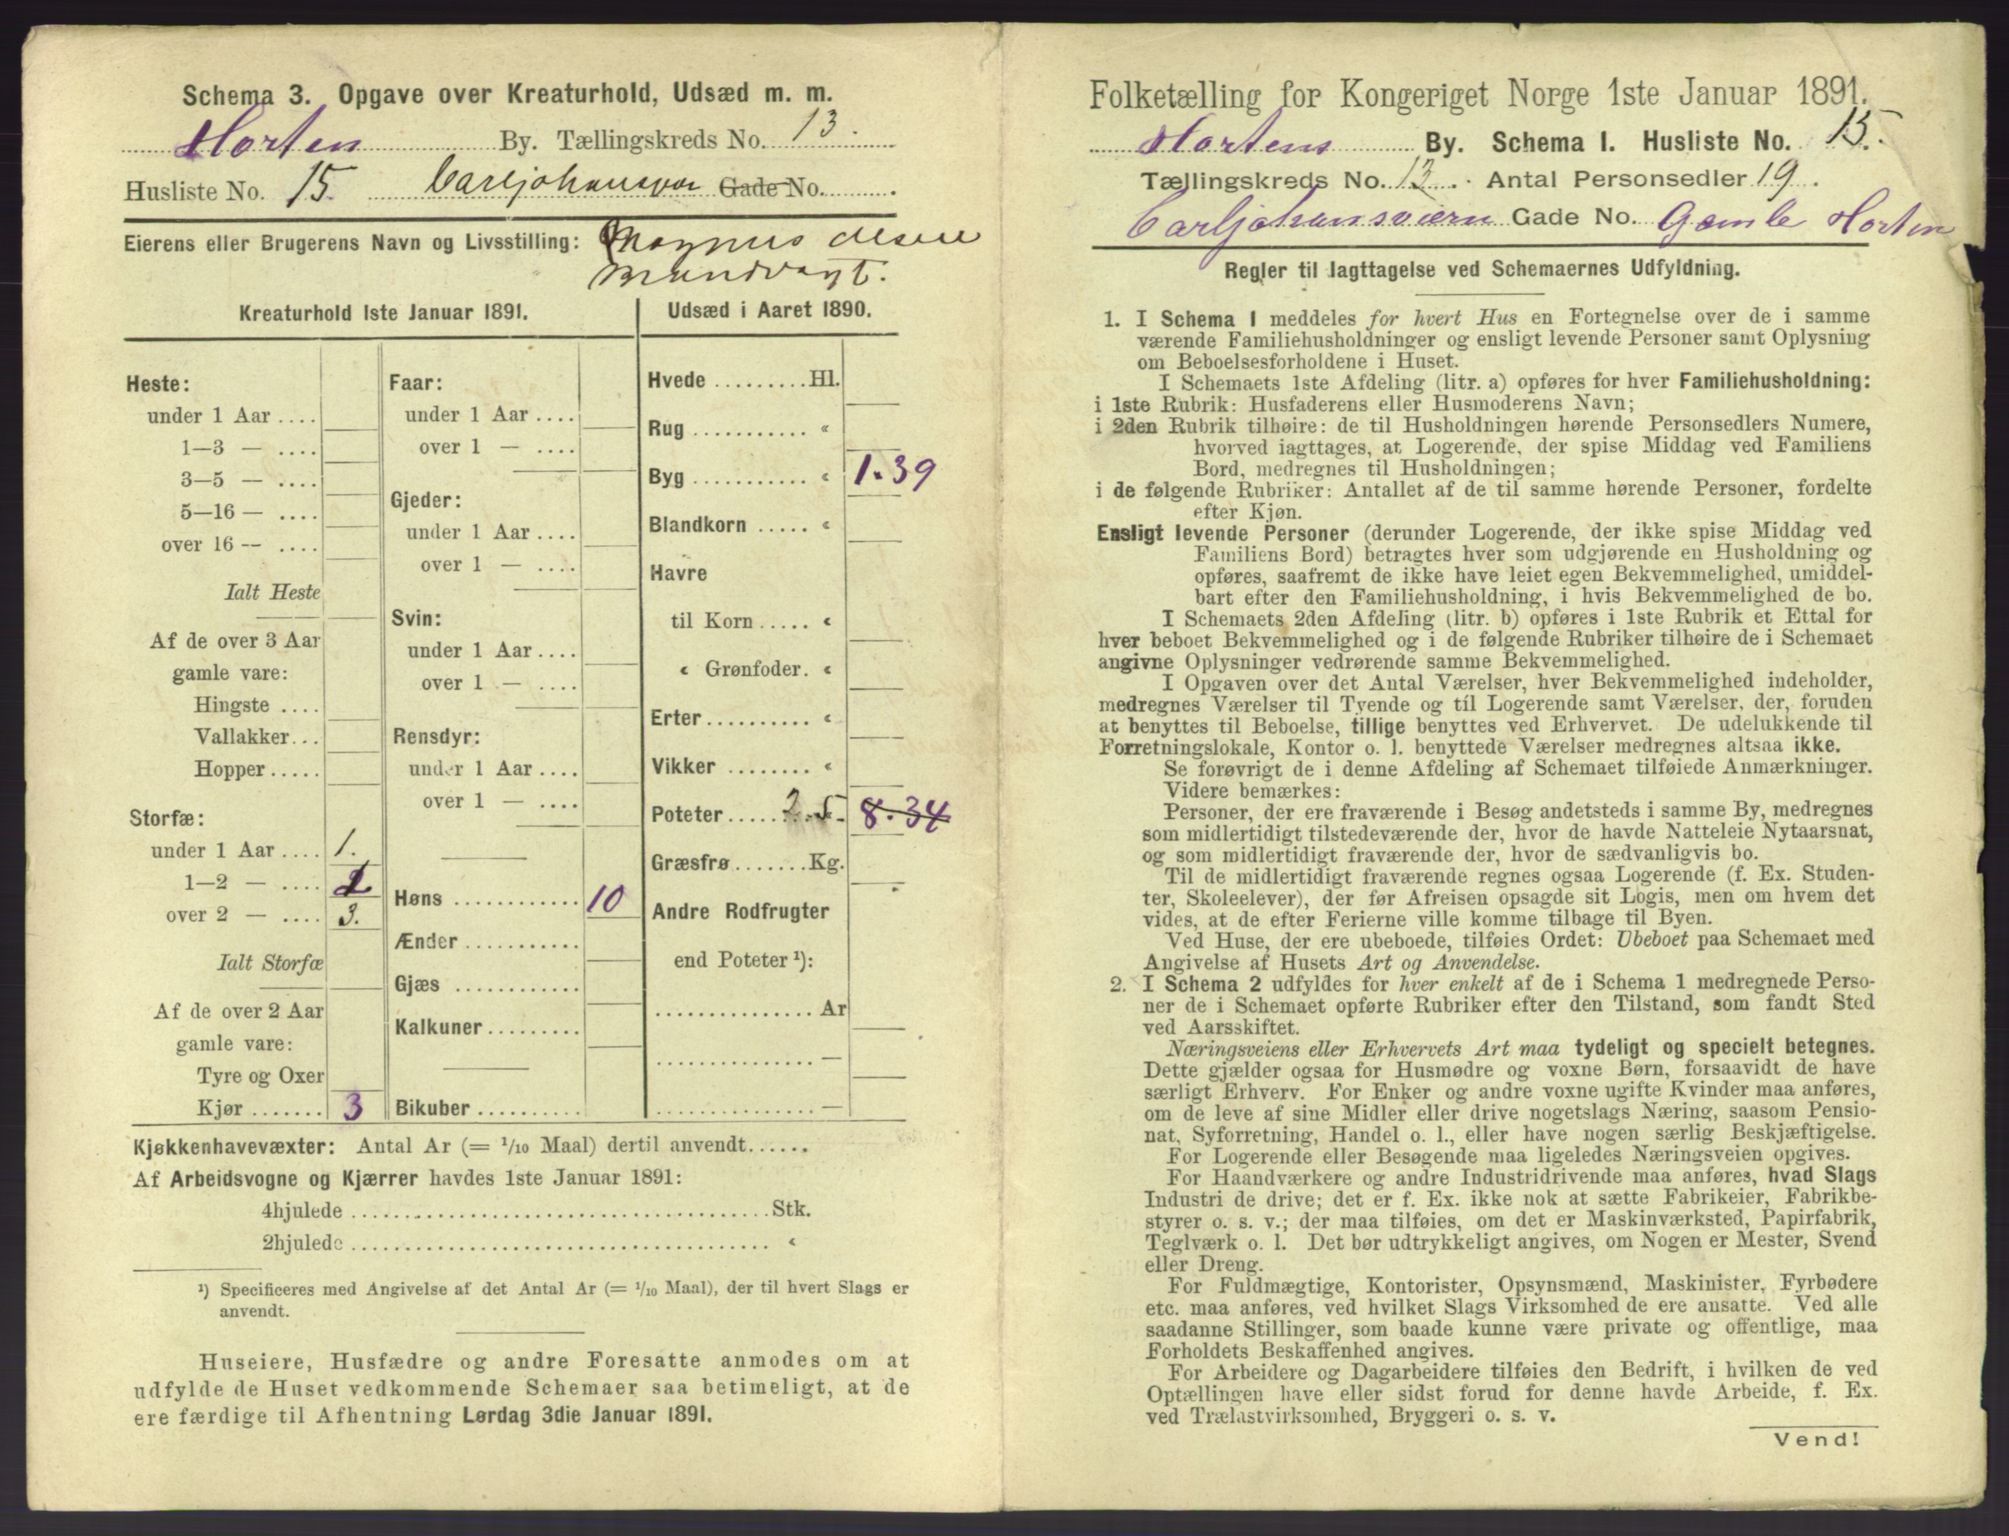 Schema 3. Opgave over Kreaturhold, Udsæd m. m.
Horten By. Tællingskreds No. 13.
Husliste No. 15. Carljohansvær Gade No.
Eierens eller Brugerens Navn og Livsstilling: Magnus Olsen
Mundvagt.
Kreaturhold 1ste Januar 1891.
Heste:
under 1 Aar ....
1—3 — ....
3—5 — ....
5—16 — ....
over 16 — ....
Ialt Heste
Af de over 3 Aar
gamle vare:
Hingste ....
Vallakker...
Hopper.....
Storfæ:
under 1 Aar .... 1.
1—2 — ....
over 2 — .... 3.
Ialt Storfæ
Af de over 2 Aar
gamle vare:
Tyre og Oxer
Kjør ....... 3
Faar:
under 1 Aar ....
over 1 — ....
Gjeder:
under 1 Aar....
over 1 — ....
Svin:
under 1 Aar....
over 1 — ....
Rensdyr:
under 1 Aar....
over 1 — ....
Høns ............ 10
Ænder...........
Gjæs ............
Kalkuner.........
Bikuber ..........
Udsæd i Aaret 1890.
Hvede .........Hl.
Rug ........... «
Byg ........... « 1.39
Blandkorn ..... «
Havre
til Korn ..... «
« Grønfoder. «
Erter.......... «
Vikker ........ «
Poteter...... 2.5. 8.34
Græsfrø .......Kg.
Andre Rodfrugter
end Poteter ¹):
............... Ar
............... —
............... —
Kjøkkenhavevæxter: Antal Ar (= 1/10 Maal) dertil anvendt......
Af Arbeidsvogne og Kjærrer havdes 1ste Januar 1891:
4hjulede ........................................Stk.
2hjulede ........................................ «
¹) Specificeres med Angivelse af det Antal Ar (= 1/10 Maal), der til hvert Slags er
anvendt.
Huseiere, Husfædre og andre Foresatte anmodes om at
udfylde de Huset vedkommende Schemaer saa betimeligt, at de
ere færdige til Afhentning Lørdag 3die Januar 1891.
Folketælling for Kongeriget Norge 1ste Januar 1891.
Hortens By. Schema I. Husliste No. 15.
Tællingskreds No. 13. Antal Personsedler 19.
Carljohansværn Gade No. Gamle Horten
Regler til Iagttagelse ved Schemaernes Udfyldning.
1. I Schema I meddeles for hvert Hus en Fortegnelse over de i samme
værende Familiehusholdninger og ensligt levende Personer samt Oplysning
om Beboelsesforholdene i Huset.
I Schemaets 1ste Afdeling (litr. a) opføres for hver Familiehusholdning:
i 1ste Rubrik: Husfaderens eller Husmoderens Navn;
i 2den Rubrik tilhøire: de til Husholdningen hørende Personsedlers Numere,
hvorved iagttages, at Logerende, der spise Middag ved Familiens
Bord, medregnes til Husholdningen;
i de følgende Rubriker: Antallet af de til samme hørende Personer, fordelte
efter Kjøn.
Ensligt levende Personer (derunder Logerende, der ikke spise Middag ved
Familiens Bord) betragtes hver som udgjørende en Husholdning og
opføres, saafremt de ikke have leiet egen Bekvemmelighed, umiddel-
bart efter den Familiehusholdning, i hvis Bekvemmelighed de bo.
I Schemaets 2den Afdeling (litr. b) opføres i 1ste Rubrik et Ettal for
hver beboet Bekvemmelighed og i de følgende Rubriker tilhøire de i Schemaet
angivne Oplysninger vedrørende samme Bekvemmelighed.
I Opgaven over det Antal Værelser, hver Bekvemmelighed indeholder,
medregnes Værelser til Tyende og til Logerende samt Værelser, der, foruden
at benyttes til Beboelse, tillige benyttes ved Erhvervet. De udelukkende til
Forretningslokale, Kontor o. l. benyttede Værelser medregnes altsaa ikke.
Se forøvrigt de i denne Afdeling af Schemaet tilføiede Anmærkninger.
Videre bemærkes:
Personer, der ere fraværende i Besøg andetsteds i samme By, medregnes
som midlertidigt tilstedeværende der, hvor de havde Natteleie Nytaarsnat,
og som midlertidigt fraværende der, hvor de sædvanligvis bo.
Til de midlertidigt fraværende regnes ogsaa Logerende (f. Ex. Studen-
ter, Skoleelever), der før Afreisen opsagde sit Logis, men om hvem det
vides, at de efter Ferierne ville komme tilbage til Byen.
Ved Huse, der ere ubeboede, tilføies Ordet: Ubeboet paa Schemaet med
Angivelse af Husets Art og Anvendelse.
2. I Schema 2 udfyldes for hver enkelt af de i Schema 1 medregnede Perso-
ner de i Schemaet opførte Rubriker efter den Tilstand, som fandt Sted
ved Aarsskiftet.
Næringsveiens eller Erhvervets Art maa tydeligt og specielt betegnes.
Dette gjælder ogsaa for Husmødre og voxne Børn, forsaavidt de have
særligt Erhverv. For Enker og andre voxne ugifte Kvinder maa anføres,
om de leve af sine Midler eller drive nogetslags Næring, saasom Pensio-
nat, Syforretning, Handel o. l., eller have nogen særlig Beskjæftigelse.
For Logerende eller Besøgende maa ligeledes Næringsveien opgives.
For Haandværkere og andre Industridrivende maa anføres, hvad Slags
Industri de drive; det er f. Ex. ikke nok at sætte Fabrikeier, Fabrikbe-
styrer o. s. v.; der maa tilføies, om det er Maskinværksted, Papirfabrik,
Teglværk o. l. Det bør udtrykkeligt angives, om Nogen er Mester, Svend
eller Dreng.
For Fuldmægtige, Kontorister, Opsynsmænd, Maskinister, Fyrbødere
etc. maa anføres, ved hvilket Slags Virksomhed de ere ansatte. Ved alle
saadanne Stillinger, som baade kunne være private og offentlige, maa
Forholdets Beskaffenhed angives.
For Arbeidere og Dagarbeidere tilføies den Bedrift, i hvilken de ved
Optællingen have eller sidst forud for denne havde Arbeide, f. Ex.
ved Trælastvirksomhed, Bryggeri o. s. v.
Vend!